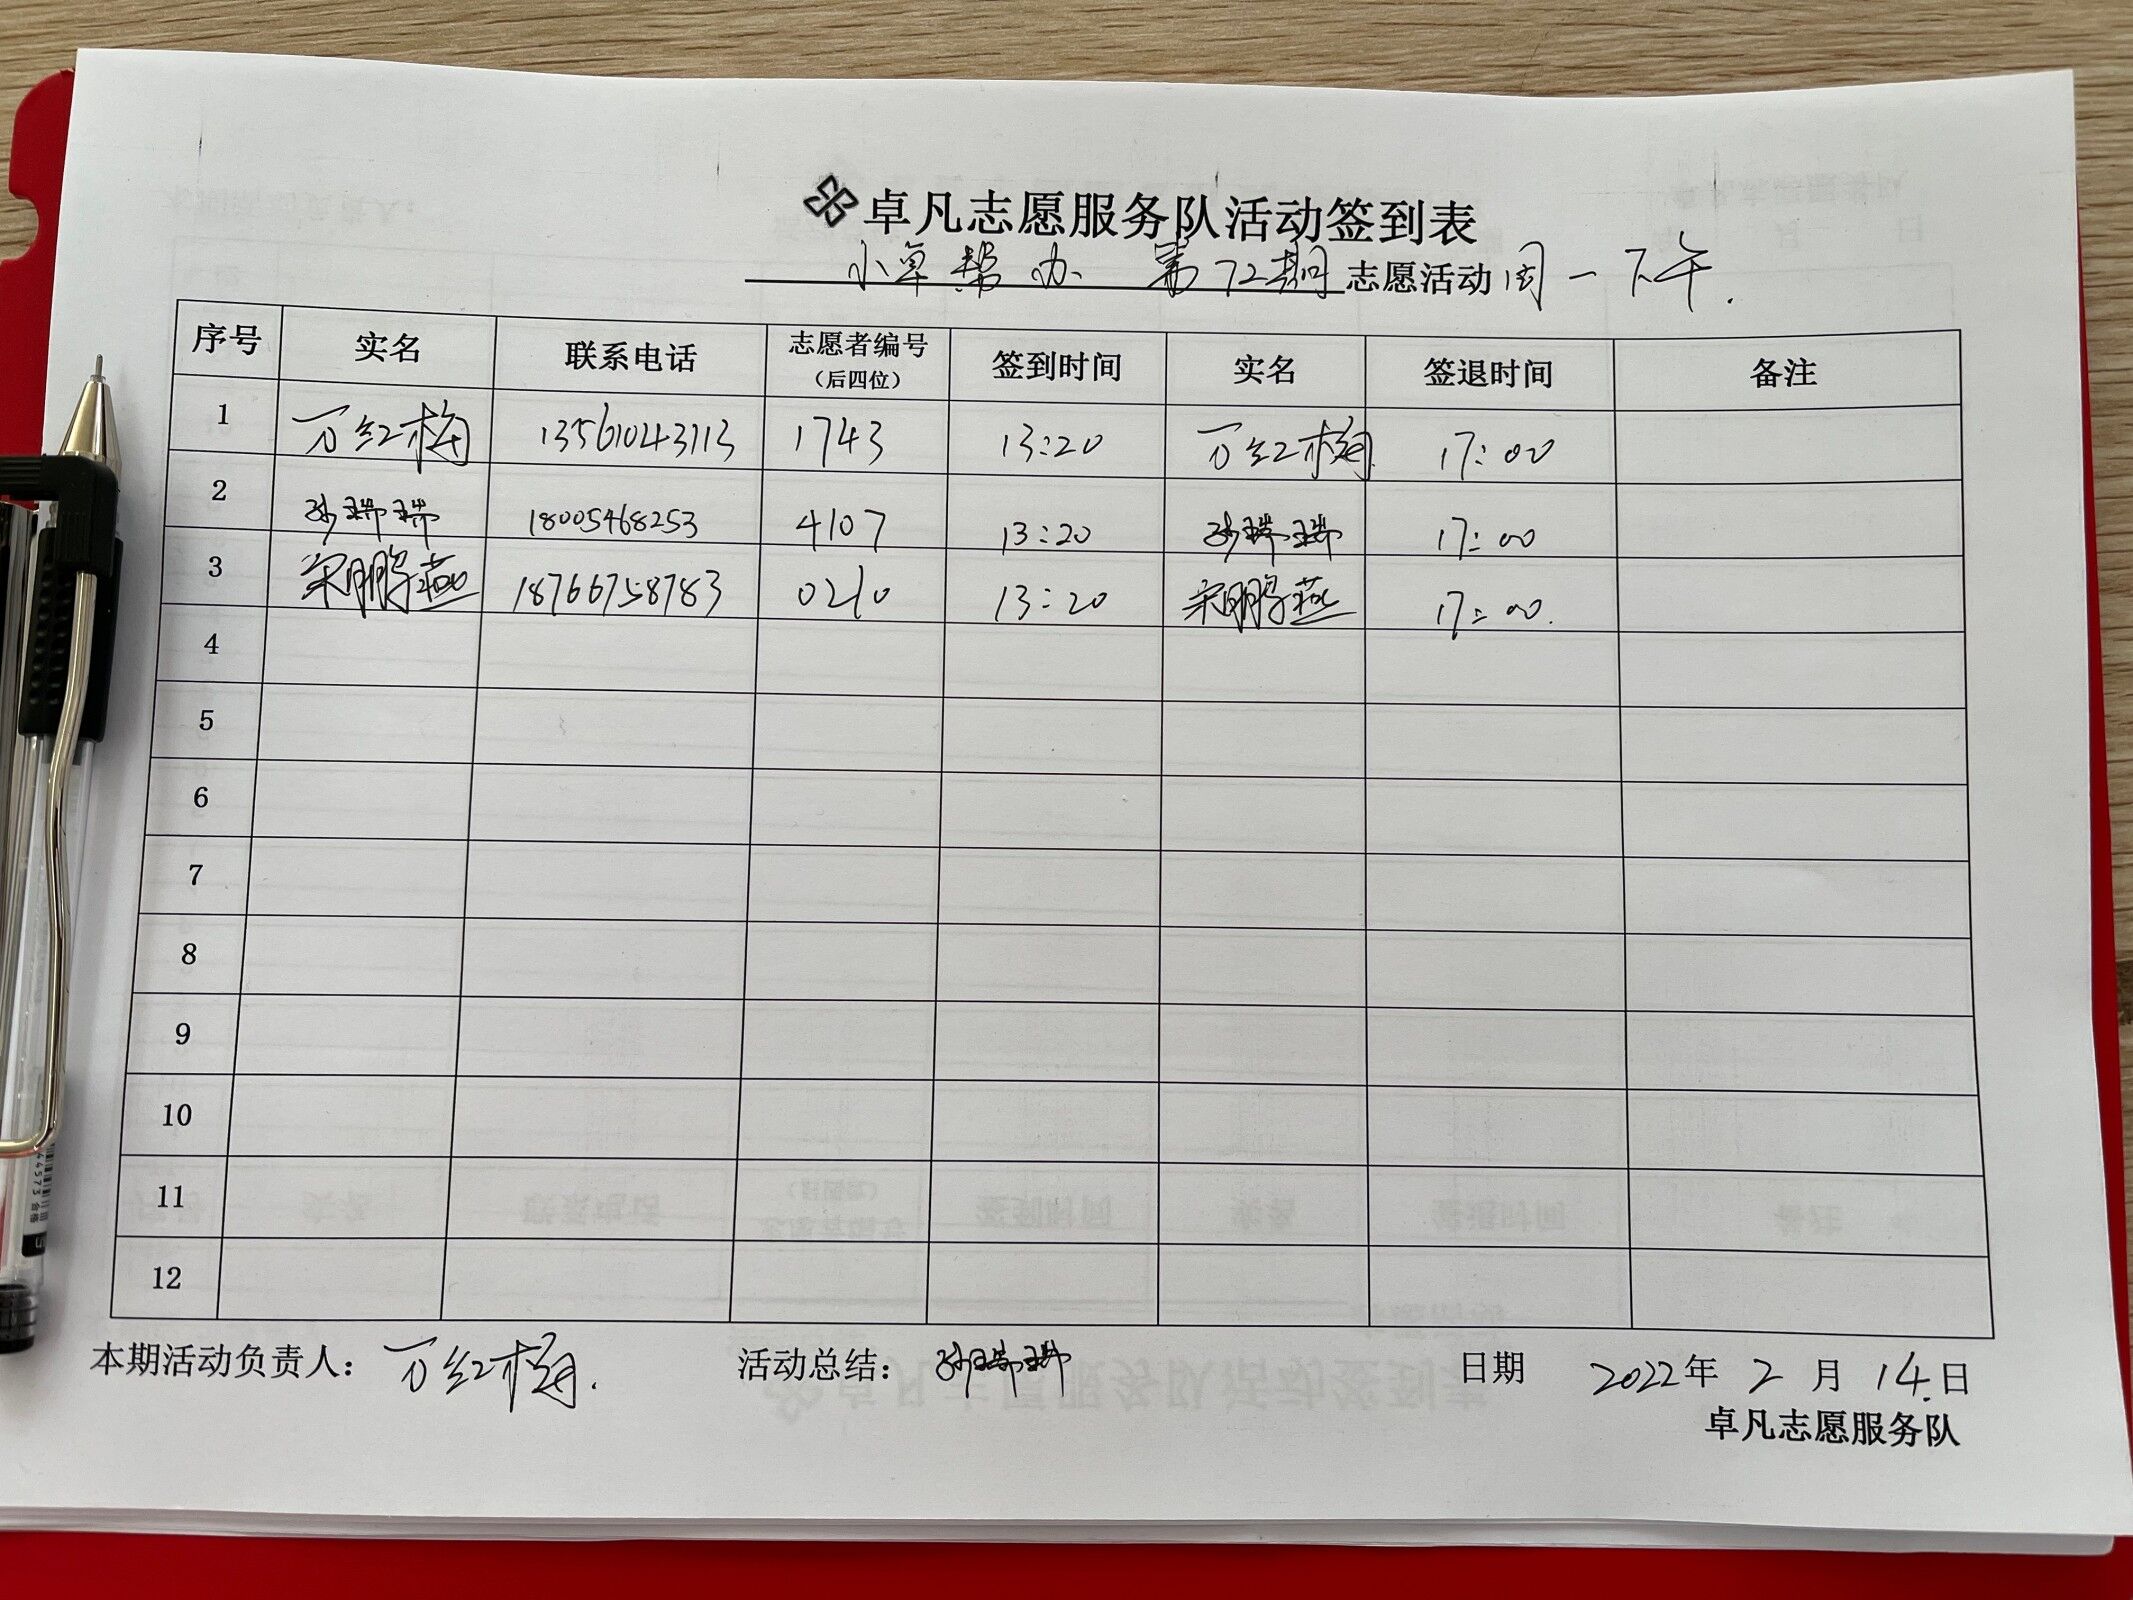 卓凡志愿服务队活动签到表
小卓帮办 第72期 志愿活动 周一下午.
序号 实名 联系电话 志愿者编号（后四位） 签到时间 实名 签退时间 备注
1 万红梅 13561043113 1743 13:20 万红梅 17:00
2 孙瑞瑞 18005468253 4107 13:20 孙瑞瑞 17:00
3 宋鹏燕 18766758783 0210 13:20 宋鹏燕 17:00.
4
5
6
7
8
9
10
11
12
本期活动负责人：万红梅. 活动总结：孙瑞瑞 日期 2022年2月14.日
卓凡志愿服务队